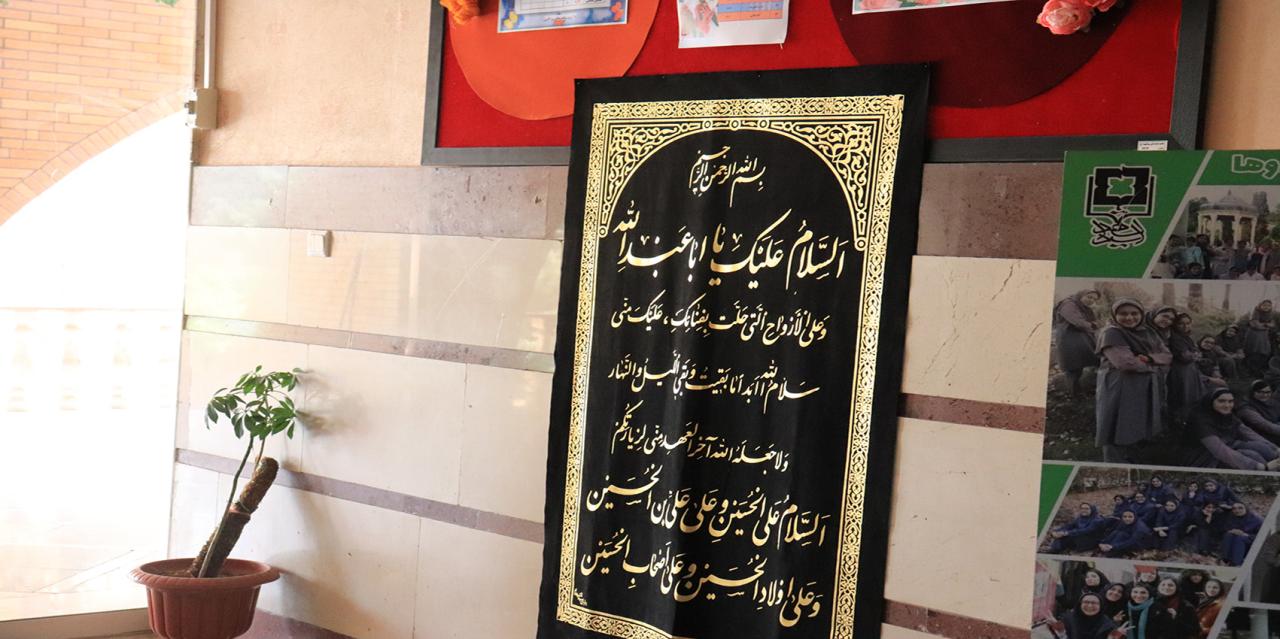 بسم الله الرحمن الرحیم
اَلسَّلامُ عَلَیْکَ یا اَبا عَبْدِ اللهِ
وَعَلَی الْأَرْواحِ الَّتی حَلَّتْ بِفِنائِکَ، عَلَیْکَ مِنّی
سَلامُ اللهِ اَبَداً ما بَقیتُ وَ بَقِیَ اللَّیْلُ وَ النَّهار
وَلا جَعَلَهُ اللهُ آخِرَ الْعَهْدِ مِنّی لِزِیارَتِکُمْ
اَلسَّلامُ عَلَی الْحُسَیْنِ وَ عَلی عَلِیِّ بْنِ الْحُسَیْنِ
وَ عَلی اَوْلادِ الْحُسَیْنِ وَ عَلی اَصْحابِ الْحُسَیْنِ